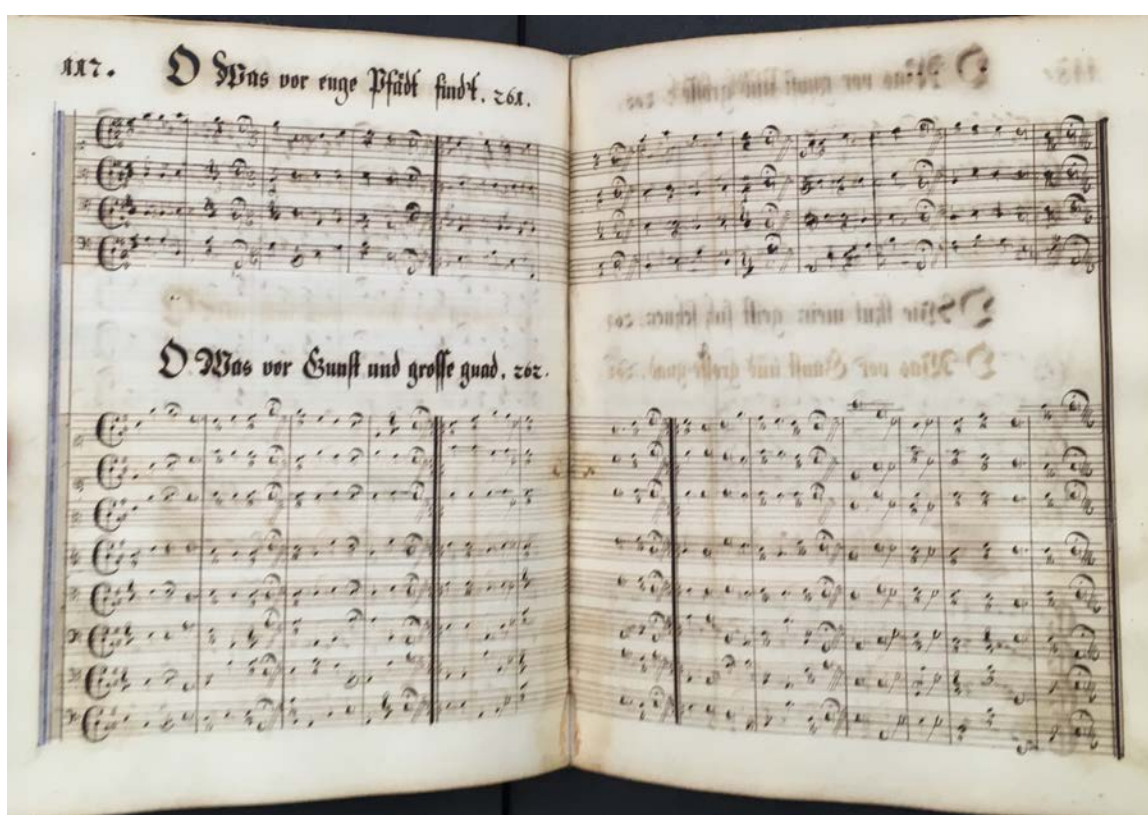 117. O Was vor enge Pfädt sindt. 261.
O Was vor Gunst und grosse gnad. 262.